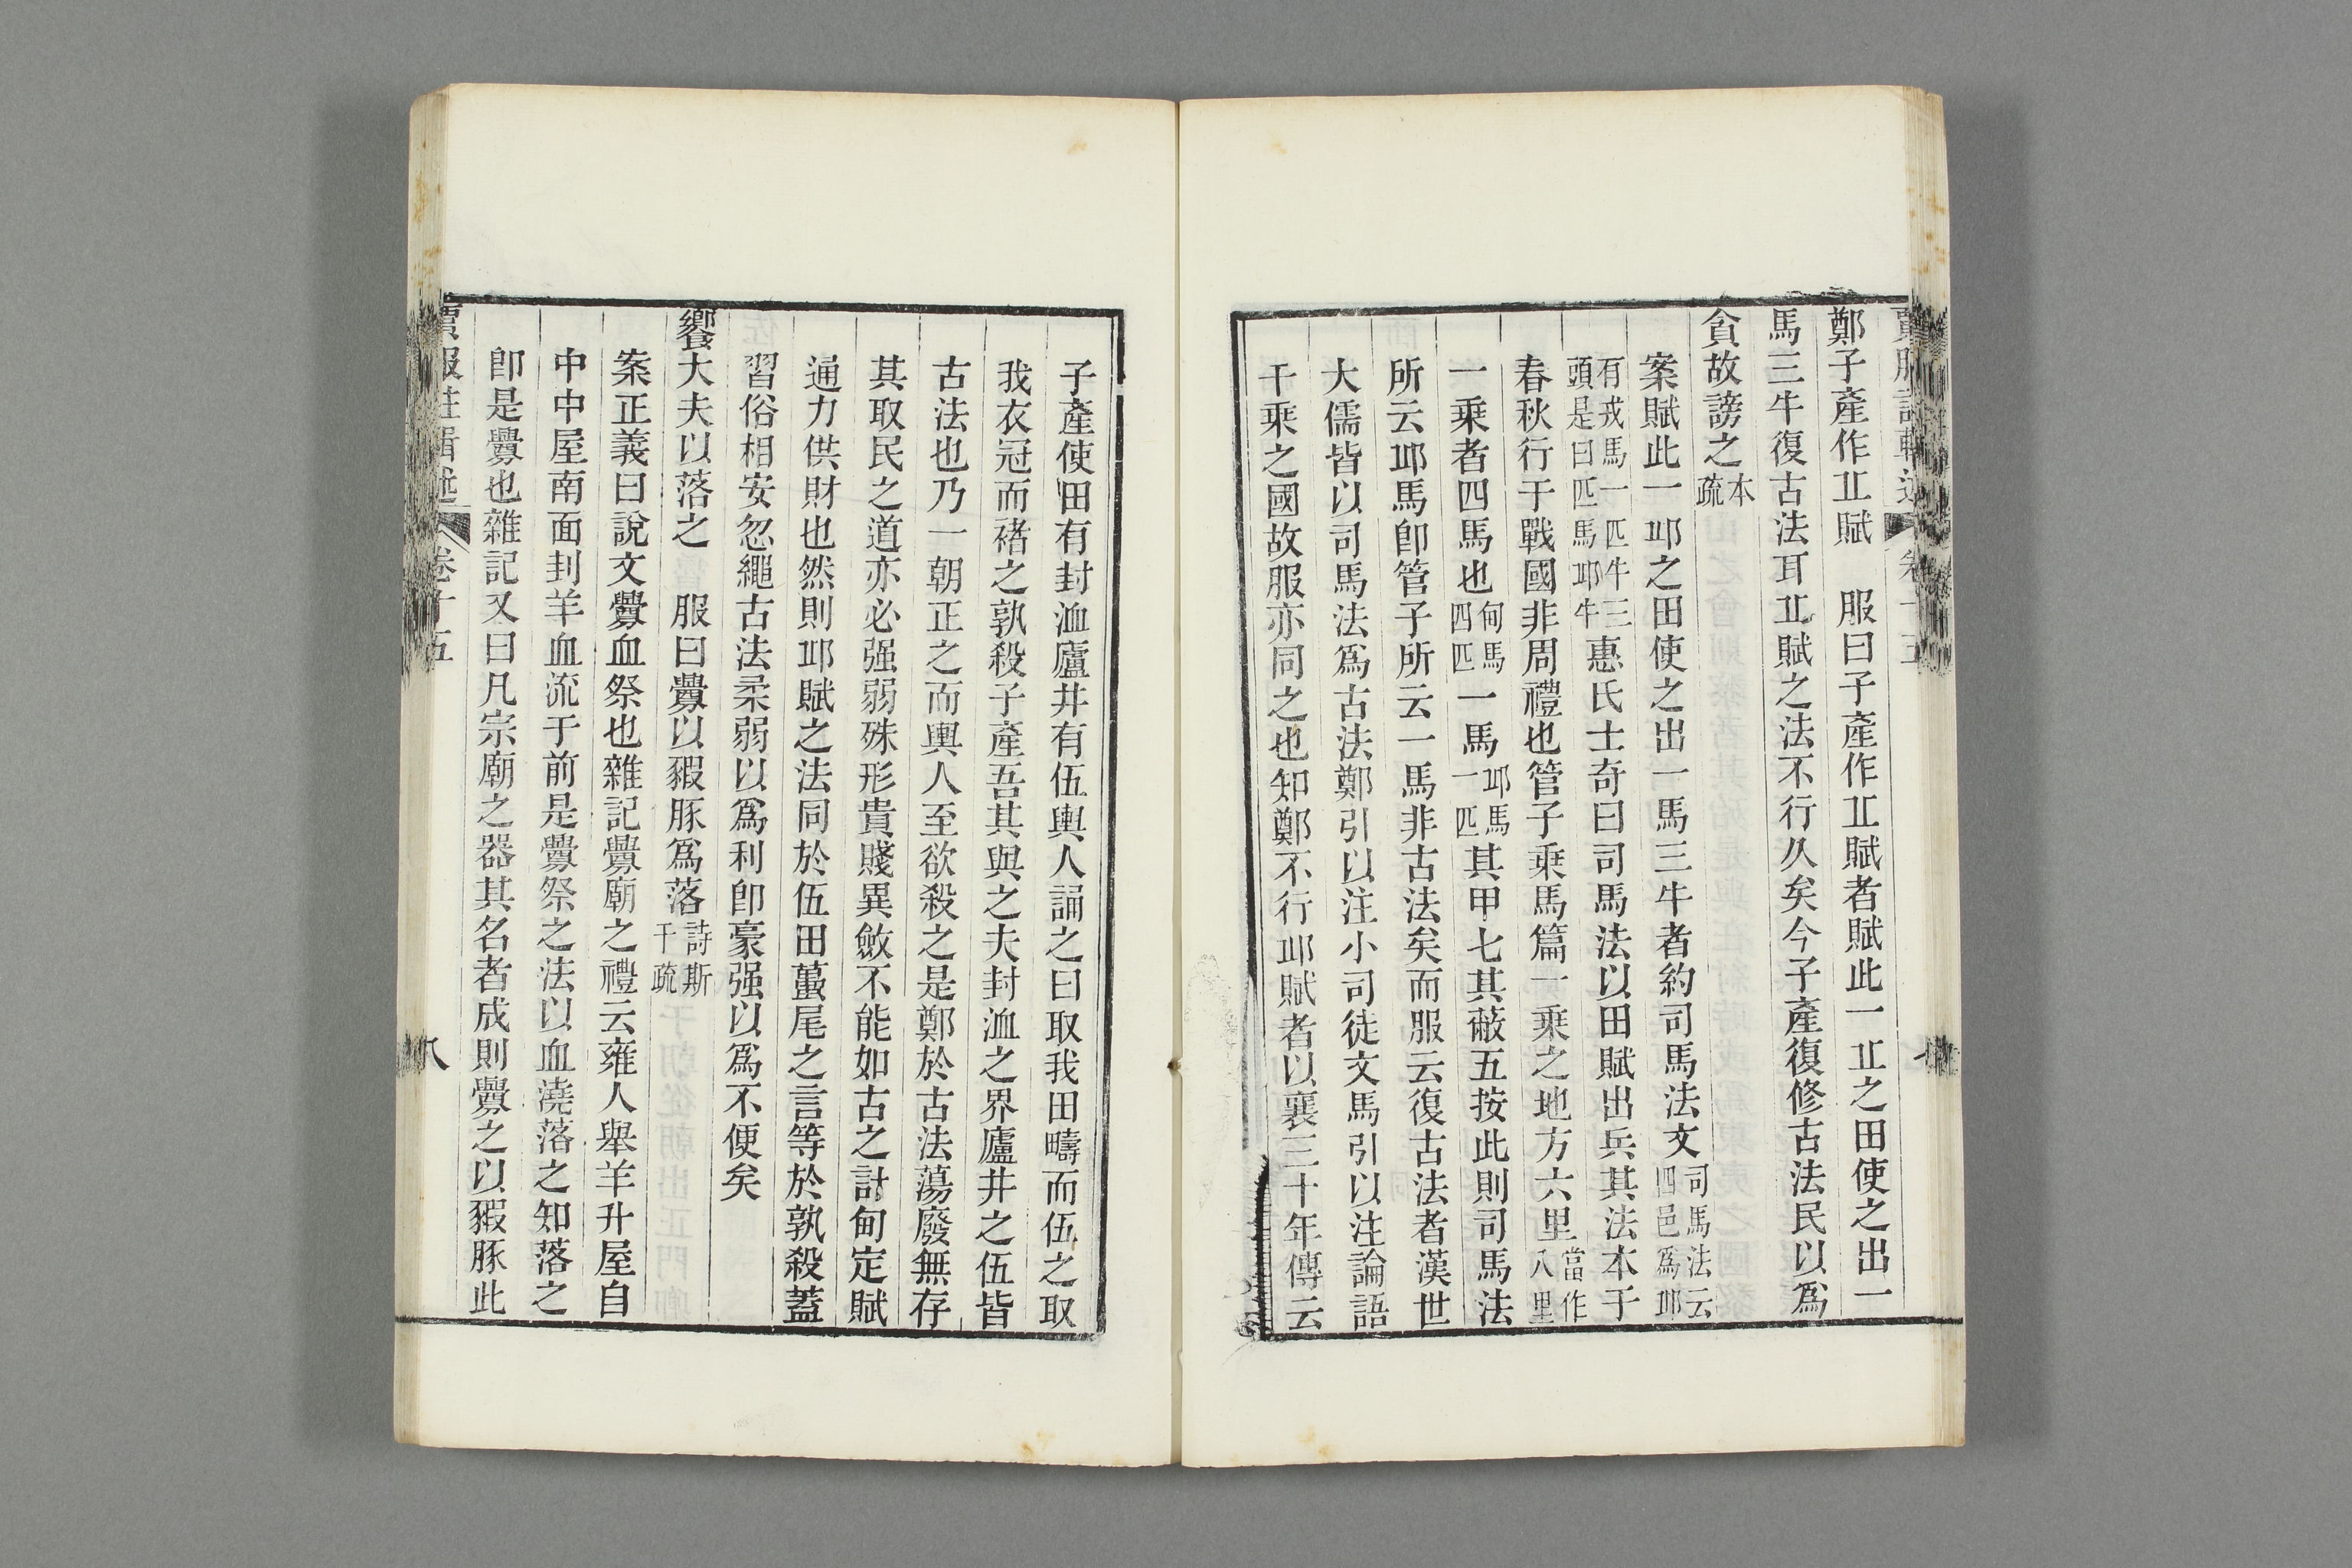 鄭子產作丠賦　服曰子產作丠賦者賦此一丠之田使之出一
馬三牛復古法耳丠賦之法不行久矣今子產復修古法民以爲
貪故謗之本疏
案賦此一邱之田使之出一馬三牛者約司馬法文司馬法云四邑爲邱
有戎馬一匹牛三頭是曰匹馬邱牛惠氏士奇曰司馬法以田賦出兵其法本于
春秋行于戰國非周禮也管子乘馬篇一乘之地方六里當作八里
一乘者四馬也甸馬四匹一馬邱馬一匹其甲七其蔽五按此則司馬法
所云邱馬卽管子所云一馬非古法矣而服云復古法者漢世
大儒皆以司馬法爲古法鄭引以注小司徒文馬引以注論語
千乘之國故服亦同之也知鄭不行邱賦者以襄三十年傳云
子產使田有封洫廬井有伍輿人誦之曰取我田疇而伍之取
我衣冠而褚之孰殺子產吾其與之夫封洫之界廬井之伍皆
古法也乃一朝正之而輿人至欲殺之是鄭於古法蕩廢無存
其取民之道亦必强弱殊形貴賤異斂不能如古之計甸定賦
通力供財也然則邱賦之法同於伍田蠆尾之言等於孰殺蓋
習俗相安忽繩古法柔弱以爲利卽豪强以爲不便矣
饗大夫以落之　服曰釁以豭豚爲落詩斯干疏
案正義曰說文釁血祭也雜記釁廟之禮云雍人舉羊升屋自
中中屋南面刲羊血流于前是釁祭之法以血澆落之知落之
卽是釁也雜記又曰凡宗廟之器其名者成則釁之以豭豚此
賈服註輯述　卷十五　八